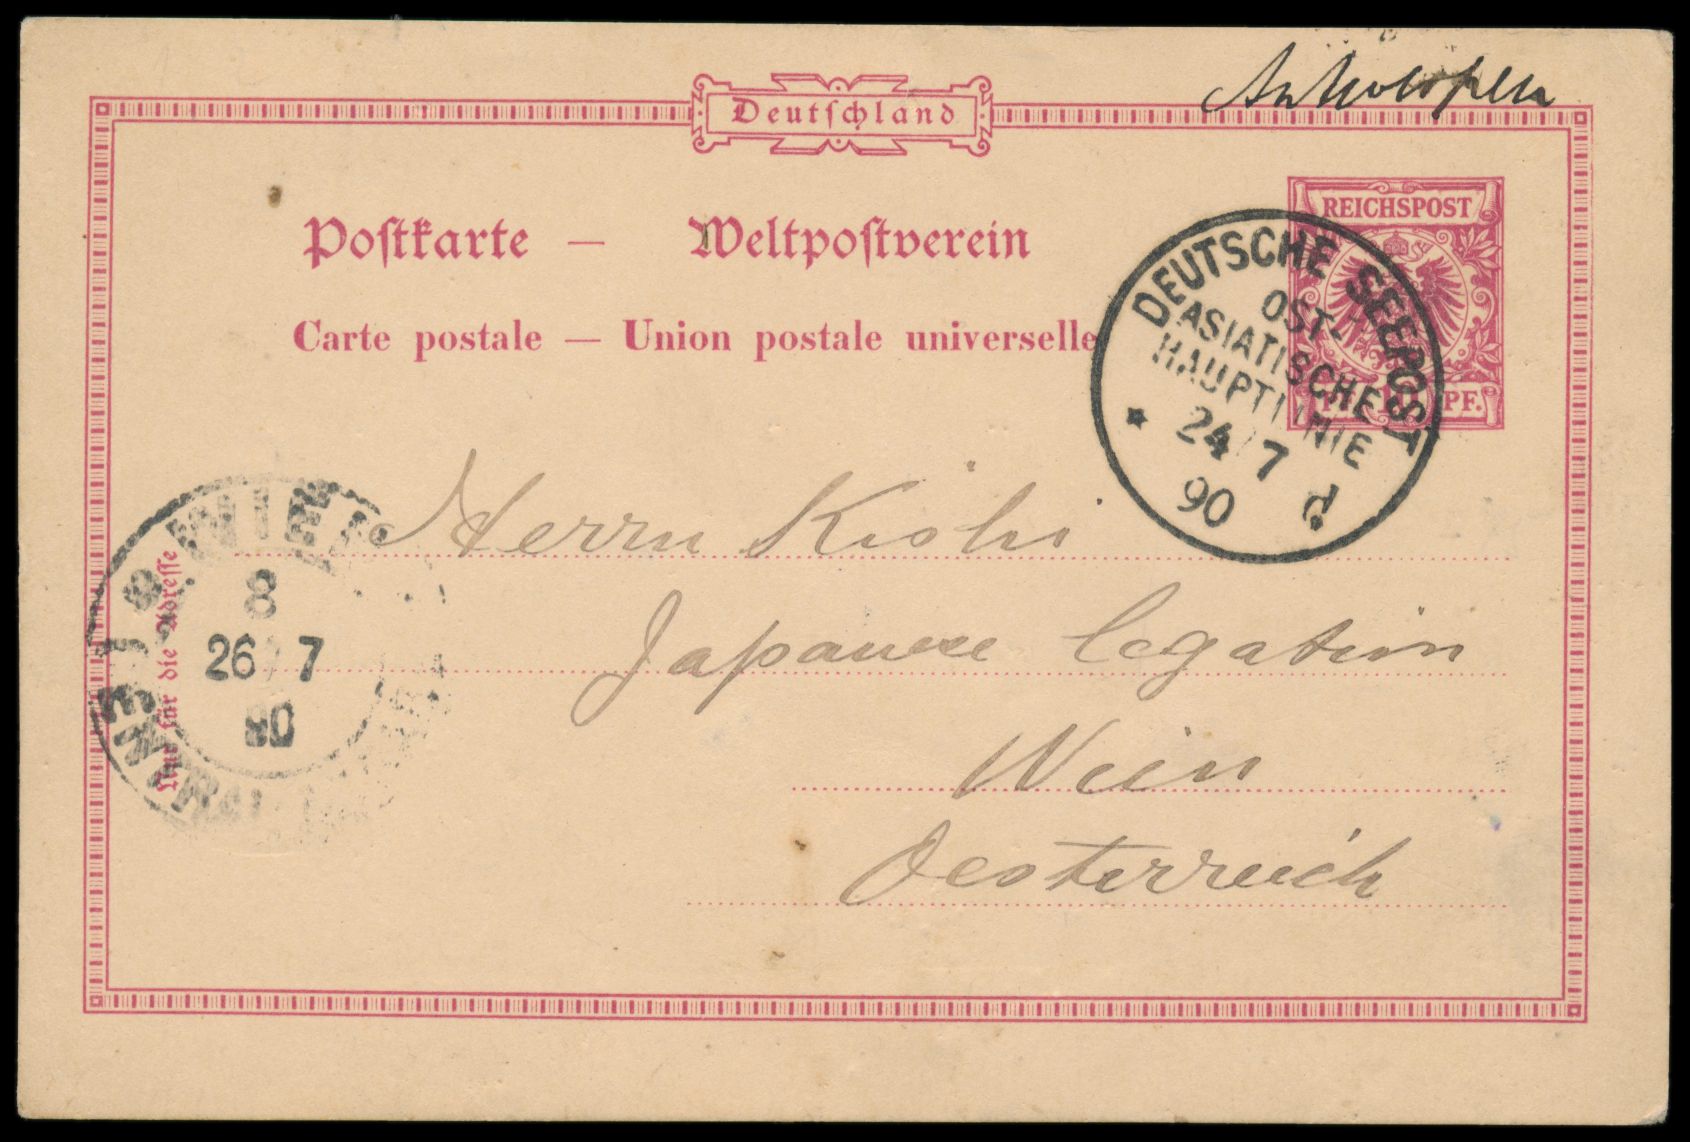 Antwerpen
Deutschland
Postkarte — Weltpostverein
Carte postale — Union postale universelle
REICHSPOST
10 PF.
DEUTSCHE SEEPOST
OST-
ASIATISCHE
HAUPTLINIE
* 24/7 d.
90
Herrn Kishi
Japanese Legation
Wien
Oesterreich
Nur für die Adresse
WIEN
8
26 7
90